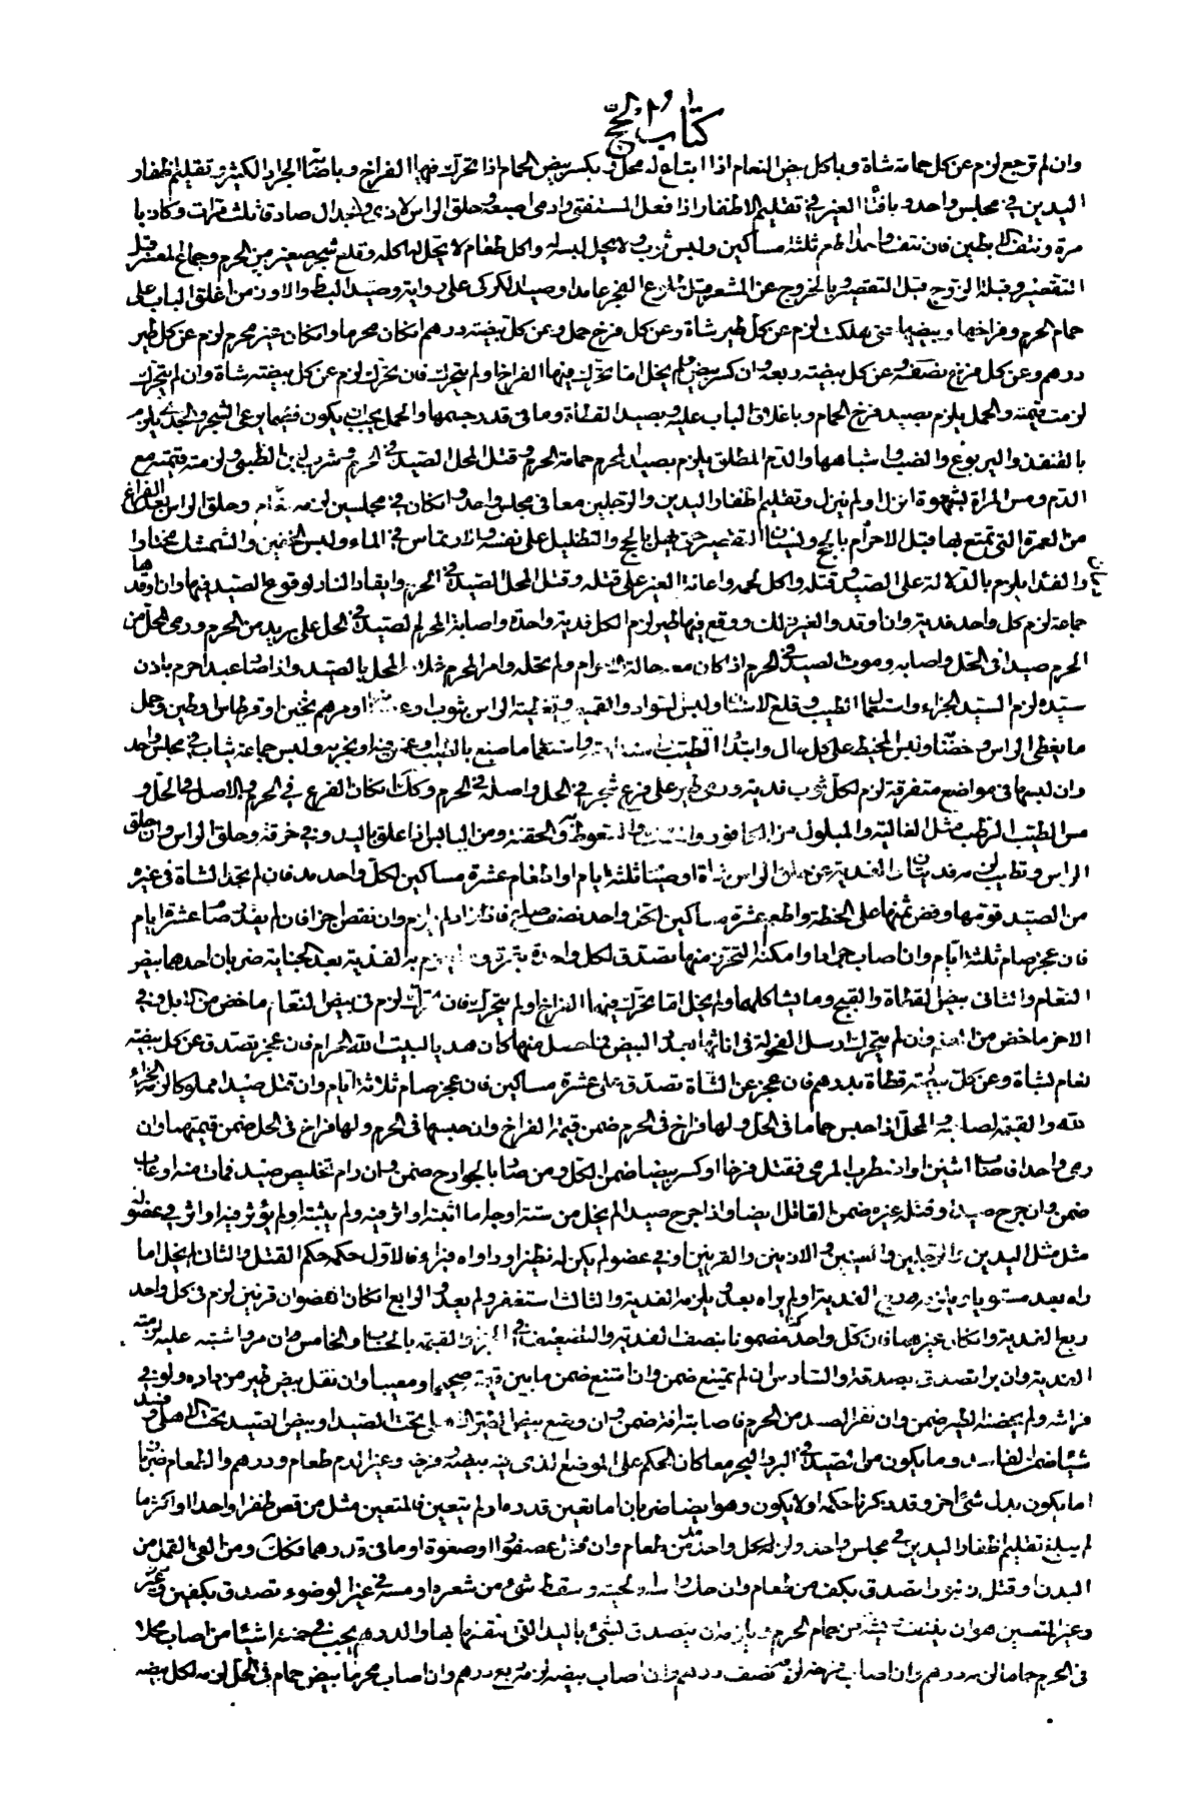 كتاب الحج
وان لم ترجع لزم عن كل حمامة شاة وباكل بيض النعام اذا ابتاع له محل وبكسر بيض الحمام اذا تحرك فيها الفراخ وباصابة الجراد الكثير وتقليم اظفار
اليدين في مجلس واحد وبافتاء الغير في تقليم الاظفار اذا فعل المستفتي وادمى اصبعه وحلق الراس لاذى والجدال صادقا ثلث مرات وكاذبا
مرة ونتف الابطين فان نتف واحدا اطعم ثلثة مساكين ولبس ثوب لا يحل لبسه واكل طعام لا يحل له اكله وقلع شجر صغير من الحرم وجماع المعتمر قبل
التقصير وقبلة الزوج قبل التقصير وبالخروج عن المشعر قبل طلوع الفجر عامدا وصيد الكركي على رواية وصيد البط والاوز من اغلق الباب على
حمام الحرم وفراخها وبيضها حتى هلكت لزم عن كل طير شاة وعن كل فرخ حمل وعن كل بيضة درهم ان كان محرما وان كان غير محرم لزم عن كل طير
درهم وعن كل فرخ نصفه وعن كل بيضة ربعه وان كسر بيض لم يخل اما تحرك فيها الفراخ او لم يتحرك فان تحرك لزم عن كل بيضة شاة وان لم يتحرك
لزمت قيمته والحمل يلزم بصيد فرخ الحمام وباغلاق الباب عليه وبصيد القطاة وما في قدر جسمها والحمل يجب ان يكون فيما يرعى الشجر والجدي يلزم
بالقنفذ واليربوع والضب واشباهها والدم المطلق يلزم بصيد المحرم حمامة الحرم وقتل المحل الصيد في الحرم وشرب لبن الظبي ولزمته قيمته مع
الدم ومس المراة بشهوة انزل او لم ينزل وتقليم اظفار اليدين والرجلين معا في مجلس واحد وان كان في مجلسين لزمه دمان وحلق الراس بعد الفراغ
من العمرة التي تمتع بها قبل الاحرام بالحج ونسيان التقصير حتى يهل بالحج والتظليل على نفسه والارتماس في الماء ولبس الخفين والشمشك مختارا
والفداء يلزم بالدلالة على الصيد وقتله واكل لحمه واعانة الغير على قتله وقتل المحل الصيد في الحرم وايقاد النار لوقوع الصيد فيها وان اوقدها
جماعة لزم كل واحد فدية وان اوقدوا لغير ذلك ووقع فيها طير لزم الكل فدية واحدة واصابة المحرم لصيد في الحل على بريد من الحرم ورمى المحل من
الحرم صيدا في الحل واصابه وموت الصيد في الحرم اذا كان معه حالة الاحرام ولم يخله وامر المحرم المحل بالصيد واذا صاد عبد احرم باذن
سيده لزم السيد الجزاء واستعمال الطيب وقلع الاسنان ولبس السواد والقميص وتغطية الراس بثوب او مرهم ثخين او قرطاس وطين وحمل
ما يغطى الراس وخضا ولبس المخيط على كل حال وابتداء الطيب واستعمال ما صنع بالطيب ولبس جماعة ثياب في مجلس واحد
وان لبسها في مواضع متفرقة لزم لكل ثوب فدية ورمى طير على فرع شجر في الحل واصله في الحرم وكذا ان كان الفرع في الحرم والاصل في الحل و
مس الطيب الرطب مثل الغالية والمبلول من الكافور والسعوط والحقنة ومن اليابس اذا علق باليد وفي خرقة وحلق الراس وان حلق
الراس وتطيب لزمه فديتان الفدية عن حلق الراس شاة او صيام ثلثة ايام او اطعام عشرة مساكين لكل واحد مد فان لم يجد الشاة في غيره
من الصيد قومها وفض ثمنها على الحنطة واطعم عشرة مساكين لكل واحد نصف صاع فان زاد لم يلزم وان نقص اجزأ فان لم يقدر صام عشرة ايام
فان عجز صام ثلثة ايام وان اصاب جرادا وامكنه التحرز منها تصدق لكل واحدة بتمرة وما يلزم به الفدية بعد الجناية ضربان احدهما بيض
النعام والثاني بيض القطاة والقبج وما يشاكلهما ولم يخل اما تحرك فيها الفراخ او لم يتحرك فان تحرك لزم في بيض النعام ماخض من الابل وفي
الاخر ماخض من الغنم وان لم يتحرك ارسل الفحولة في اناثها بعدد البيض فما حصل منها كان هديا لبيت الله الحرام فان عجز تصدق عن كل بيضة
نعام بشاة وعن كل بيضة قطاة بدرهم فان عجز عن الشاة تصدق على عشرة مساكين فان عجز صام ثلاثة ايام وان قتل صيدا مملوكا لزمه الجزاء
لله والقيمة لصاحبه المحل اذا حبس حماما في الحل ولها فراخ في الحرم ضمن قيمة الفراخ وان حبسها في الحرم ولها فراخ في الحل ضمن قيمتهما وان
رمى واحدا فاصاب اثنين او اضطرب المرمي فقتل فرخا او كسر بيضا ضمن الكل ومن صاد بالجوارح ضمن وان رام تخليص صيد فمات منه او عاب
ضمن وان جرح صيدا وقتله غيره ضمن القاتل ايضا واذا جرح صيدا لم يخل من ستة اوجه اما اثبته او اثر فيه ولم يثبته او لم يؤثر فيه او اثر في عضو له
مثل مثل اليدين والرجلين والعينين والاذنين والقرنين او في عضو لم يكن له نظير او داواه فبراء فالاول حكمه حكم القتل والثاني لم يخل اما
راه بعد مستويا لزمه ربع الفدية او لم يراه بعد يلزمه الفدية والثالث استغفر ولم يعد والرابع ان كان العضوان قرنين لزم في كل واحد
ربع الفدية وان كان غيرهما كان كل واحد مضمونا بنصف الفدية والتضعيف في الجزاء والقيمة بالحساب والخامس وان مر واشتبه عليه لزمته
الفدية وان برا تصدق بصدقة والسادس ان لم يمتنع ضمن وان امتنع ضمن ما بين قيمته صحيحا ومعيبا وان نقل بيض طير من داره ولو في
فراشه ولم يحضنه الطير ضمن وان نفر الصيد من الحرم فاصابته افة ضمن وان وضع بيض الطير الاهلي تحت الصيد او بيض الصيد تحت الاهلي وفسد
شيئا ضمن الفاسد وما يكون من الصيد في البر والبحر معا كان الحكم على الموضع الذي فيه بيضه وفرخه وغير الدم طعام ودرهم والطعام ضربان
اما يكون بدل شيء اخر وقد ذكرنا حكمه اولا يكون وهو ايضا ضربان اما يعين قدره او لم يتعين فالمتعين مثل من قص ظفرا واحدا او اكثر ما
لم يبلغ تقليم اظفار اليدين في مجلس واحد ولزمه لكل واحد مد من طعام وان قتل عصفورا او صعوة او ما في قدرهما فكذلك ومن القى القمل من
البدن او قتل زنبورا تصدق بكف من طعام وان حك راسه او لحيته وسقط شيء من شعره او مسه في غير الوضوء تصدق بكفين وغير
وغير المتعين هو ان ينتف ريشة من حمام الحرم يلزمه ان يتصدق بشيء باليد التي ينتفها بها والدرهم يجب في خمسة اشياء من اصاب محلا
في الحرم حماما لزمه درهم وان اصاب فرخه لزمه نصف درهم وان اصاب بيضه لزمه ربع درهم وان اصاب محرما بيض حمام في الحل لزمه لكل بيضه